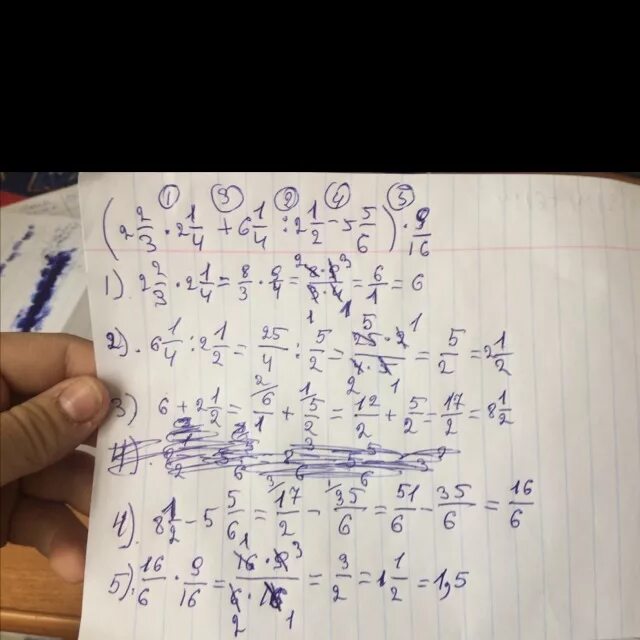 ① ③ ② ④ ⑤
(2 2/3 · 2 1/4 + 6 1/4 : 2 1/2 - 5 5/6) · 9/16
1). 2 2/3 · 2 1/4 = 8/3 · 9/4 = 8·9/3·4 = 6/1 = 6
2). 6 1/4 : 2 1/2 = 25/4 : 5/2 = 25·2/4·5 = 5/2 = 2 1/2
3) 6 + 2 1/2 = 6/1 + 5/2 = 12/2 + 5/2 = 17/2 = 8 1/2
4). 8 1/2 - 5 5/6 = 17/2 - 35/6 = 51/6 - 35/6 = 16/6
5). 16/6 · 9/16 = 16·9/6·16 = 3/2 = 1 1/2 = 1,5